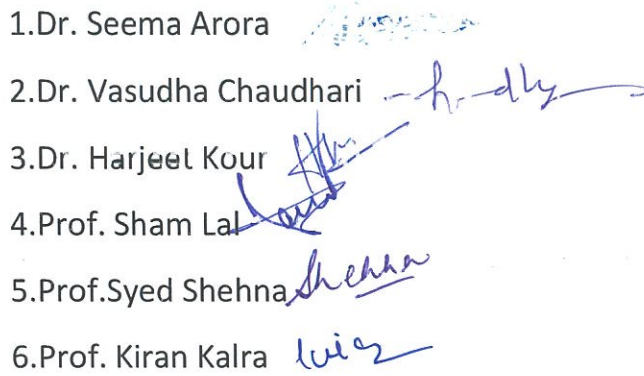 1.Dr. Seema Arora
2.Dr. Vasudha Chaudhari
3.Dr. Harjeet Kour
4.Prof. Sham Lal
5.Prof.Syed Shehna Shehna
6.Prof. Kiran Kalra